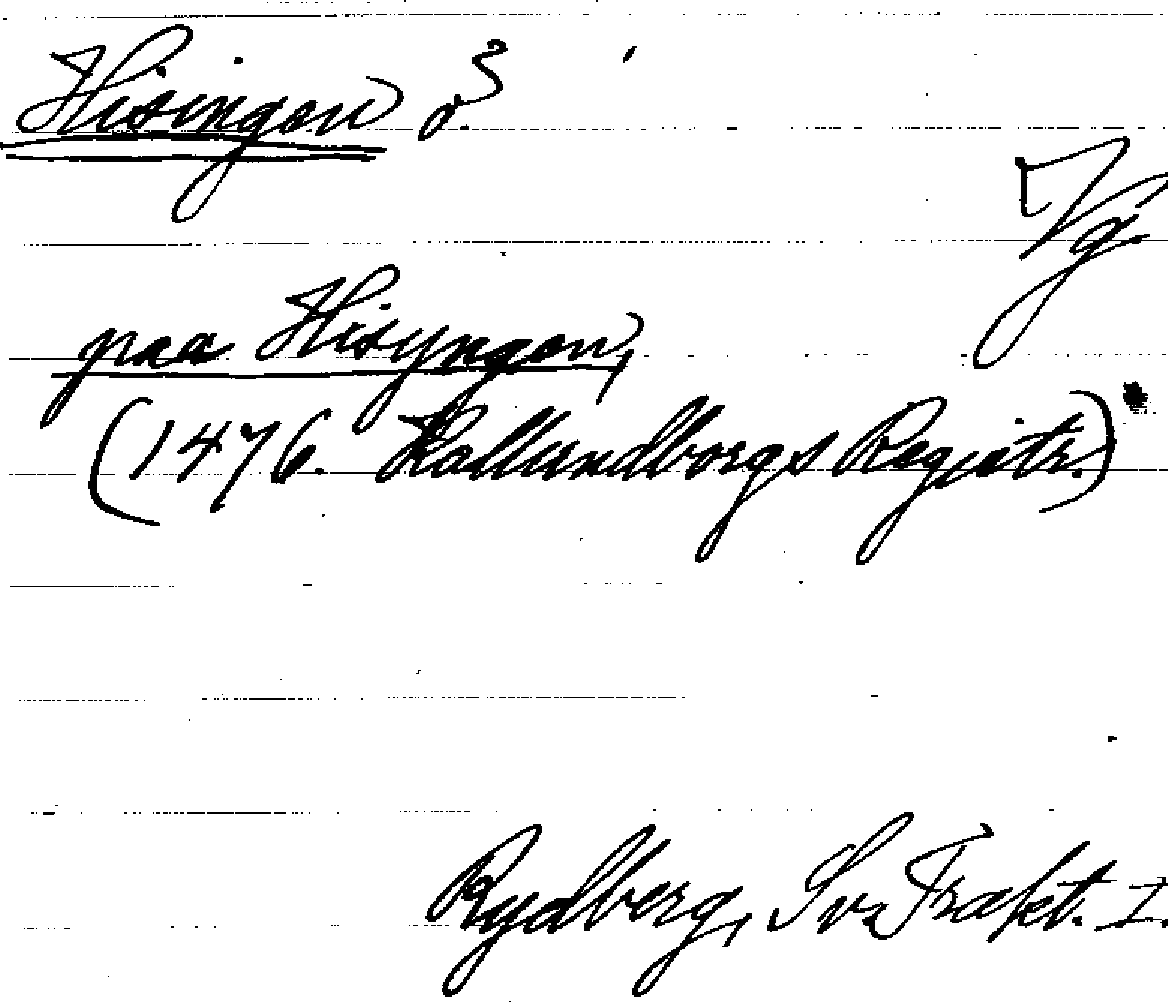 Hisingen ö
Vg
paa Hisyngen,
(1476. Kallundborgs Registr.)
Rydberg, Sv. Trakt. I.